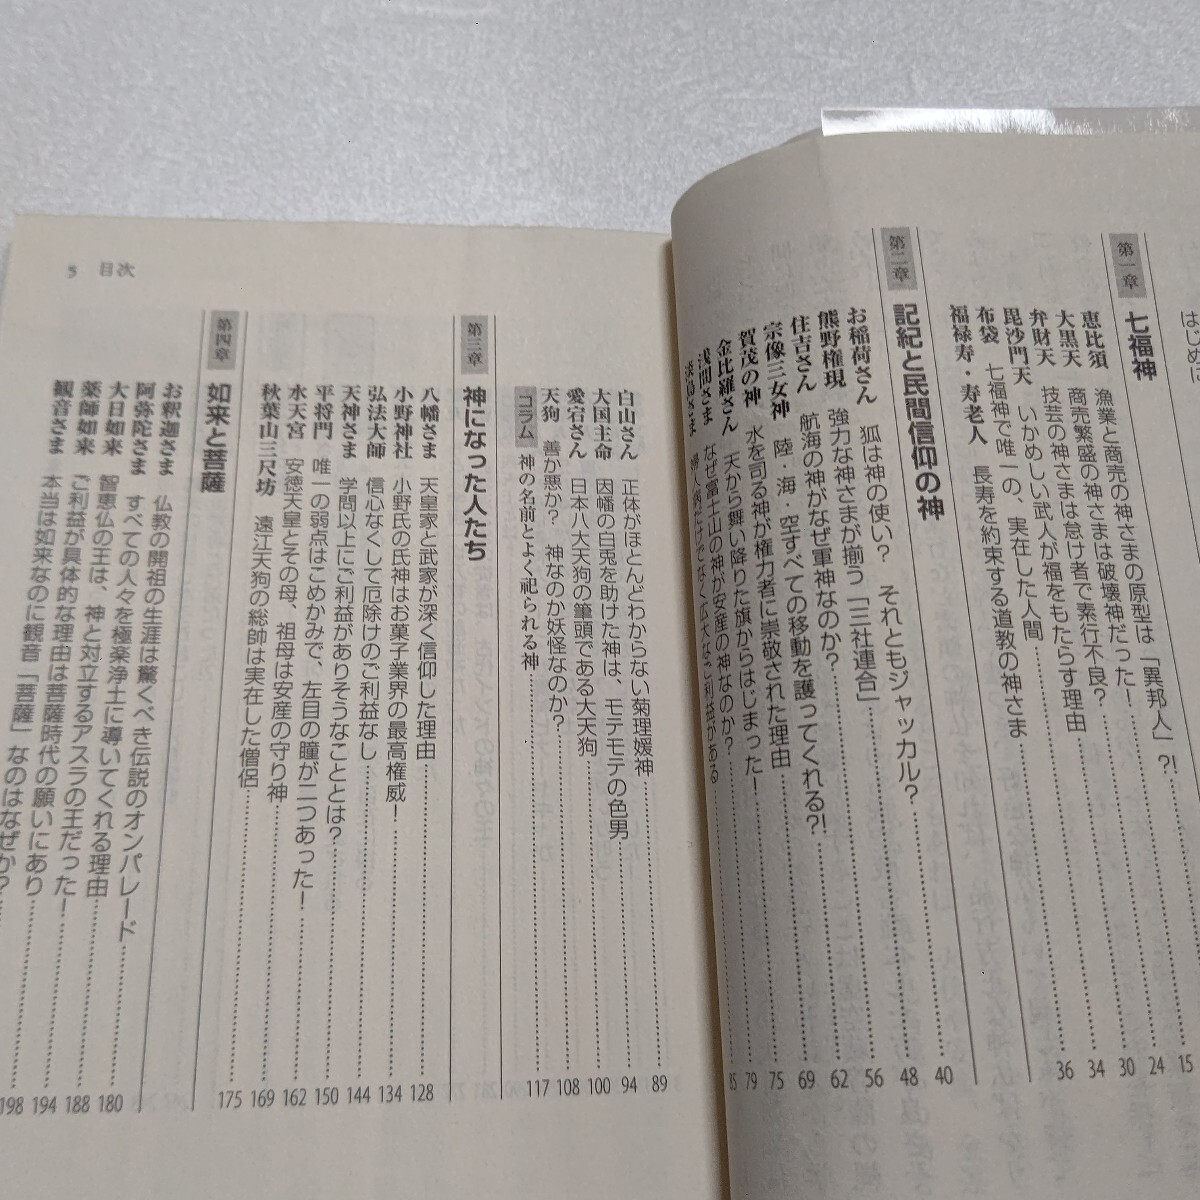 はじめに
第一章 七福神
恵比須 漁業と商売の神さまの原型は「異邦人」?!
大黒天 商売繁盛の神さまは破壊神だった!……15
弁財天 技芸の神さまは怠け者で素行不良?……24
毘沙門天 いかめしい武人が福をもたらす理由……30
布袋 七福神で唯一の、実在した人間……34
福禄寿・寿老人 長寿を約束する道教の神さま……36
第二章 記紀と民間信仰の神
お稲荷さん 狐は神の使い? それともジャッカル?……40
熊野権現 強力な神さまが揃う「三社連合」……48
住吉さん 航海の神がなぜ軍神なのか?……56
宗像三女神 陸・海・空すべての移動を護ってくれる?!……62
賀茂の神 水を司る神が権力者に崇敬された理由……69
金比羅さん 天から舞い降りた旗からはじまった!……75
浅間さま なぜ富士山の神が安産の神なのか?……79
淡島さま 婦人病だけでなく広大なご利益がある……85
白山さん 正体がほとんどわからない菊理媛神……89
大国主命 因幡の白兎を助けた神は、モテモテの色男……94
愛宕さん 日本八大天狗の筆頭である大天狗……100
天狗 善か悪か? 神なのか妖怪なのか?……108
コラム 神の名前とよく祀られる神……117
第三章 神になった人たち
八幡さま 天皇家と武家が深く信仰した理由……128
小野神社 小野氏の氏神はお菓子業界の最高権威!……134
弘法大師 信心なくして厄除けのご利益なし……144
天神さま 学問以上にご利益がありそうなこととは?……150
平将門 唯一の弱点はこめかみで、左目の瞳が二つあった!……162
水天宮 安徳天皇とその母、祖母は安産の守り神……169
秋葉山三尺坊 遠江天狗の総帥は実在した僧侶……175
第四章 如来と菩薩
お釈迦さま 仏教の開祖の生涯は驚くべき伝説のオンパレード……180
阿弥陀さま すべての人々を極楽浄土に導いてくれる理由……188
大日如来 智恵仏の王は、神と対立するアスラの王だった!……194
薬師如来 ご利益が具体的な理由は菩薩時代の願いにあり……198
観音さま 本当は如来なのに観音「菩薩」なのはなぜか?
5 目次